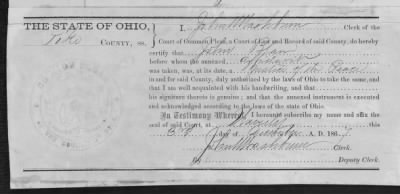 THE STATE OF OHIO, I, John Washburn Clerk of the
Pike COUNTY, ss. Court of Common Pleas, a Court of Law and Record of said County, do hereby
certify that John
before whom the annexed
was taken, was, at its date, a Justice of the Peace
in and for said County, duly authorized by the laws of Ohio to take the same,
and that I am well acquainted with his handwriting, and that
his signature thereto is genuine; and that the annexed instrument is executed
and acknowledged according to the laws of the state of Ohio.
In Testimony Whereof, I hereunto subscribe my name and affix the
seal of said Court, at this
day of A. D. 186
John Washburn Clerk.
By Deputy Clerk.